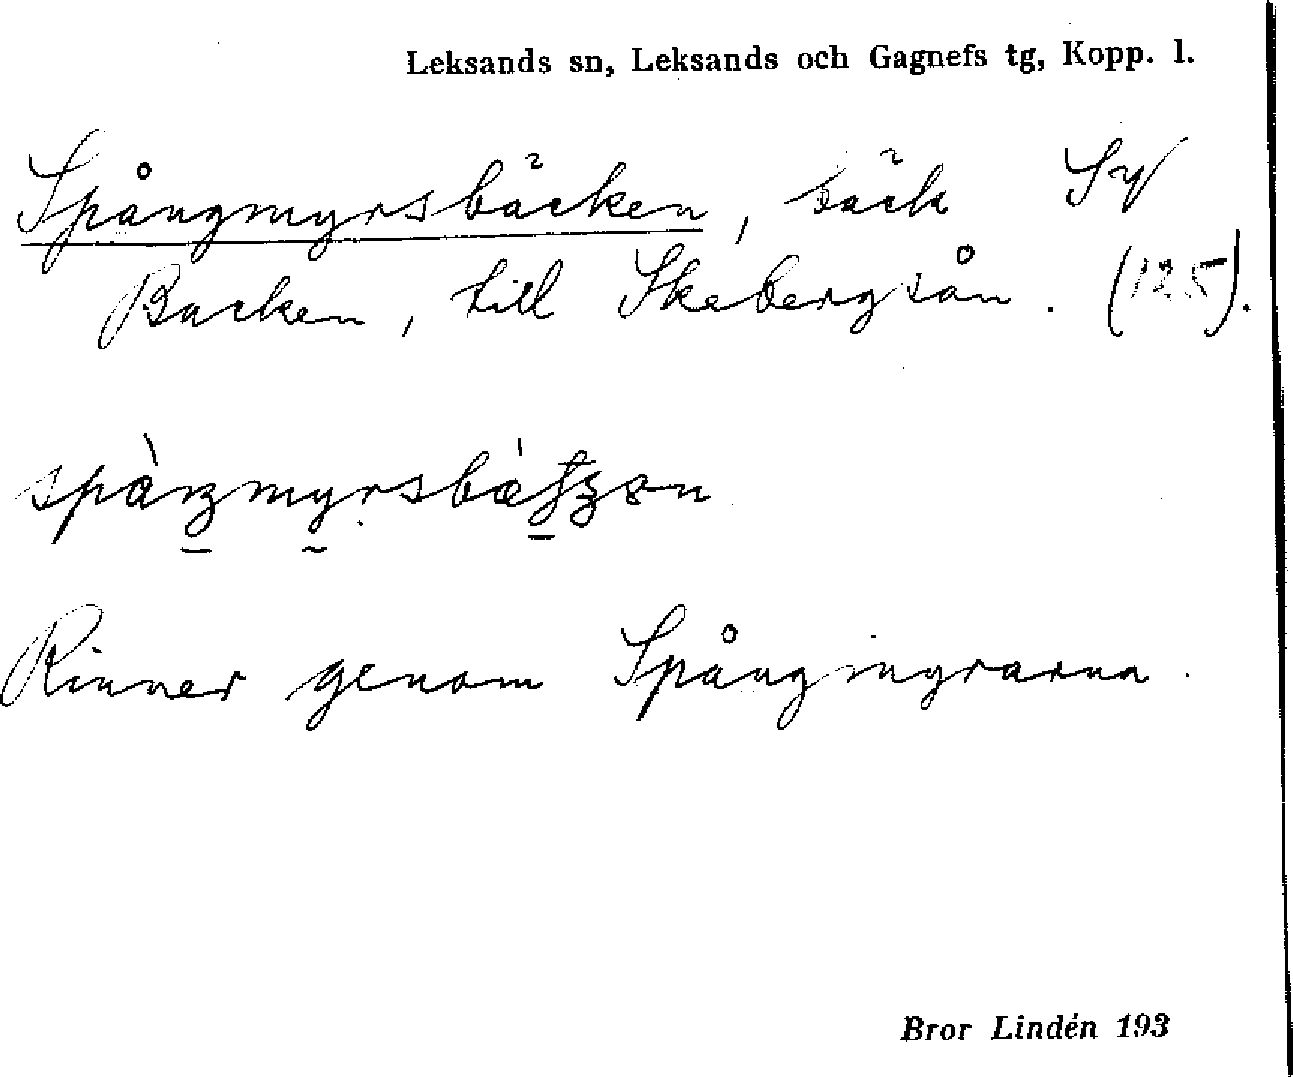 Leksands sn, Leksands och Gagnefs tg, Kopp. l.
Spångmyrsbäcken, bäck SV
Backen, till Skebergsån. (125).
Rinner genom Spångmyrarna.
Bror Lindén 193